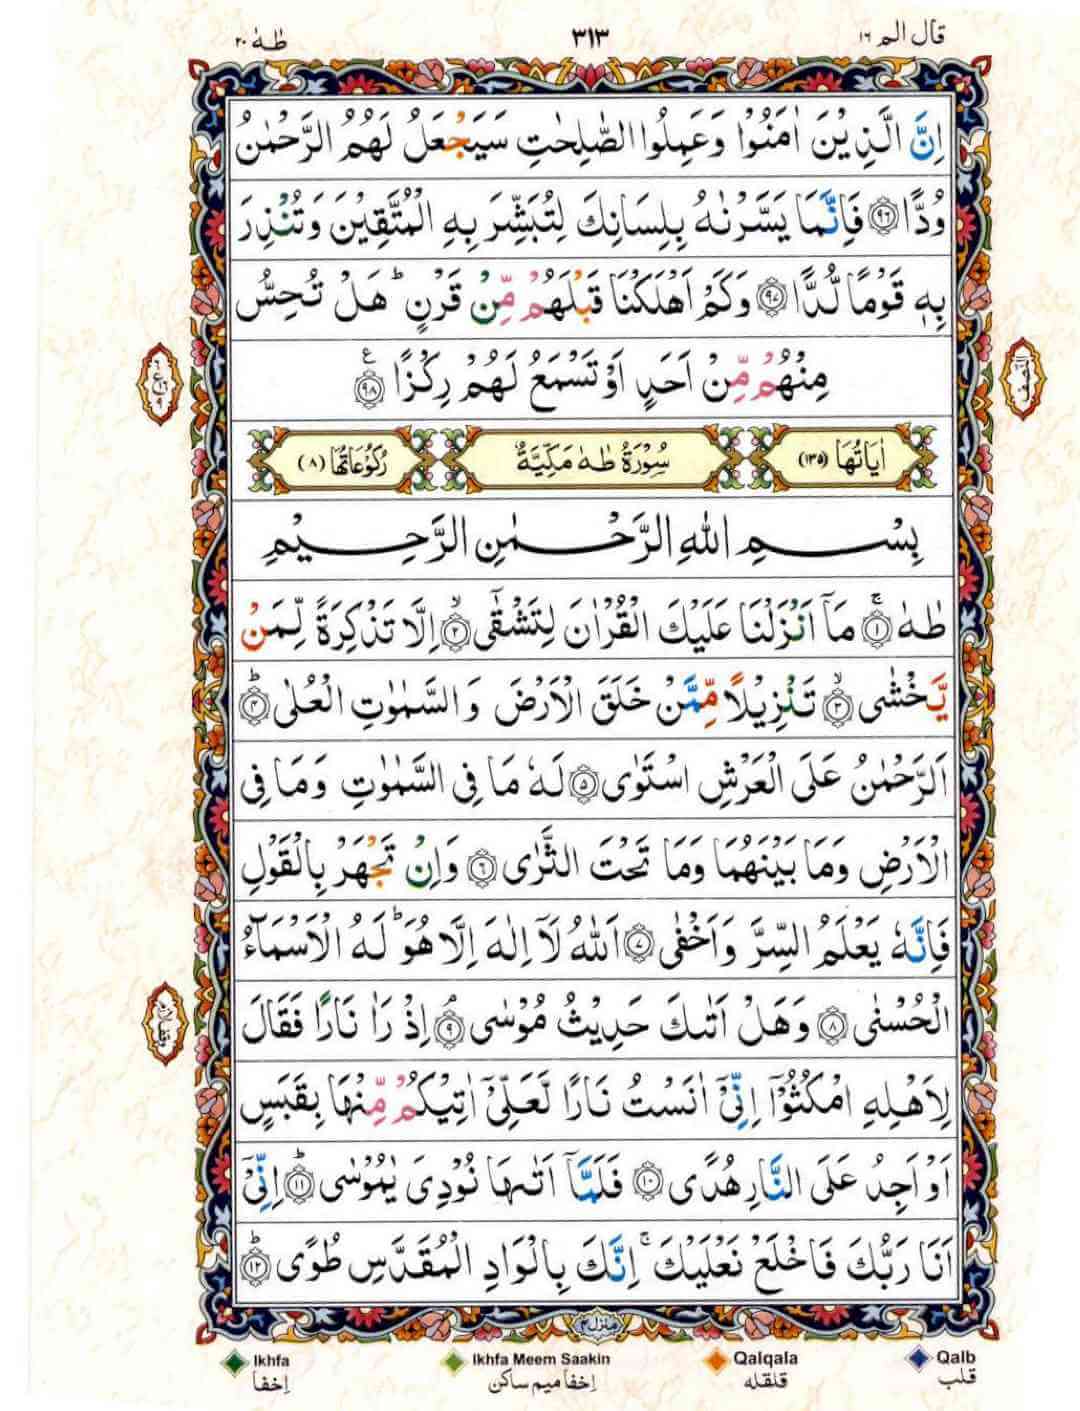 قال الم ١٦
٣١٣
طٰهٰ ٢٠
اِنَّ الَّذِيْنَ اٰمَنُوْا وَعَمِلُوا الصّٰلِحٰتِ سَيَجْعَلُ لَهُمُ الرَّحْمٰنُ
وُدًّا ﴿٩٦﴾ فَاِنَّمَا يَسَّرْنٰهُ بِلِسَانِكَ لِتُبَشِّرَ بِهِ الْمُتَّقِيْنَ وَتُنْذِرَ
بِهٖ قَوْمًا لُّدًّا ﴿٩٧﴾ وَكَمْ اَهْلَكْنَا قَبْلَهُمْ مِّنْ قَرْنٍ ؕ هَلْ تُحِسُّ
مِنْهُمْ مِّنْ اَحَدٍ اَوْ تَسْمَعُ لَهُمْ رِكْزًا ﴿٩٨﴾ ع
النصف
اٰيَاتُهَا (١٣٥)
سُوْرَةُ طٰهٰ مَكِّيَّةٌ
رُكُوْعَاتُهَا (٨)
بِسْمِ اللّٰهِ الرَّحْمٰنِ الرَّحِيْمِ
طٰهٰ ﴿١﴾ۚ مَاۤ اَنْزَلْنَا عَلَيْكَ الْقُرْاٰنَ لِتَشْقٰٓى ﴿٢﴾ۙ اِلَّا تَذْكِرَةً لِّمَنْ
يَّخْشٰى ﴿٣﴾ۙ تَنْزِيْلًا مِّمَّنْ خَلَقَ الْاَرْضَ وَالسَّمٰوٰتِ الْعُلٰى ﴿٤﴾ؕ
اَلرَّحْمٰنُ عَلَى الْعَرْشِ اسْتَوٰى ﴿٥﴾ لَهٗ مَا فِى السَّمٰوٰتِ وَمَا فِى
الْاَرْضِ وَمَا بَيْنَهُمَا وَمَا تَحْتَ الثَّرٰى ﴿٦﴾ وَاِنْ تَجْهَرْ بِالْقَوْلِ
فَاِنَّهٗ يَعْلَمُ السِّرَّ وَاَخْفٰى ﴿٧﴾ اَللّٰهُ لَاۤ اِلٰهَ اِلَّا هُوَ ؕ لَهُ الْاَسْمَآءُ
الْحُسْنٰى ﴿٨﴾ وَهَلْ اَتٰىكَ حَدِيْثُ مُوْسٰى ﴿٩﴾ۘ اِذْ رَاٰ نَارًا فَقَالَ
لِاَهْلِهِ امْكُثُوْۤا اِنِّىْۤ اٰنَسْتُ نَارًا لَّعَلِّىْۤ اٰتِيْكُمْ مِّنْهَا بِقَبَسٍ
اَوْ اَجِدُ عَلَى النَّارِ هُدًى ﴿١٠﴾ فَلَمَّاۤ اَتٰىهَا نُوْدِىَ يٰمُوْسٰى ﴿١١﴾ؕ اِنِّىْۤ
اَنَا رَبُّكَ فَاخْلَعْ نَعْلَيْكَ ۚ اِنَّكَ بِالْوَادِ الْمُقَدَّسِ طُوًى ﴿١٢﴾ؕ
منزل ٤
Ikhfa
إخفا
Ikhfa Meem Saakin
إخفا ميم ساكن
Qalqala
قلقله
Qalb
قلب